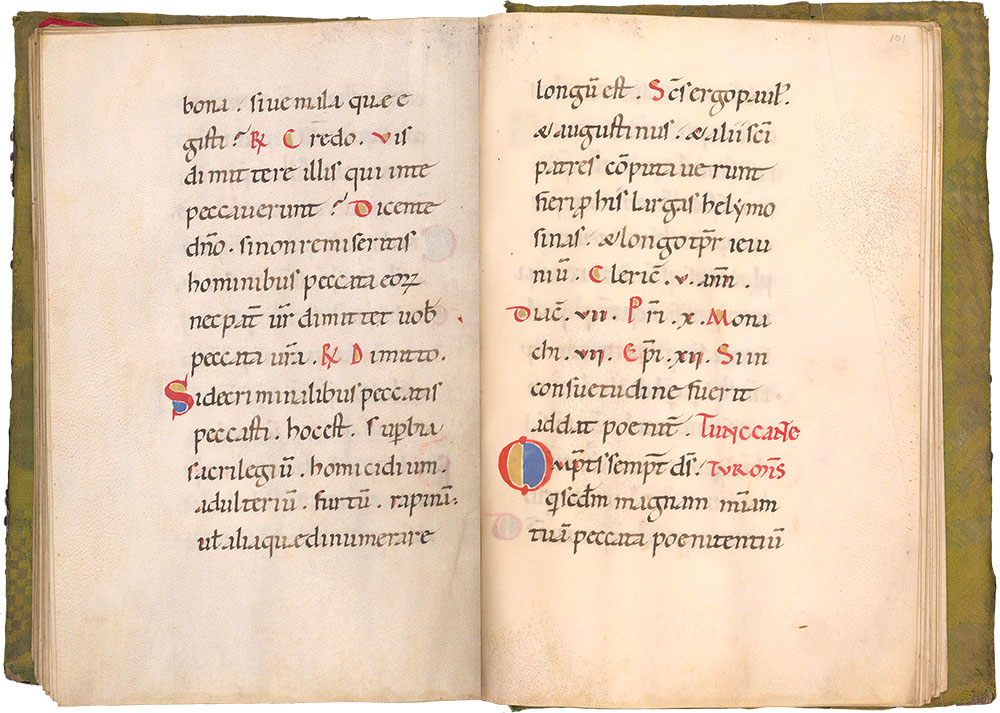 bona . siue mala que e
gisti ? ℞ Credo . Vis
dimittere illis qui in te
peccauerunt ? Dicente
dño . si non remiseritis
hominibus peccata eoꝝ
nec pat̄ ur̄ dimittet uob̄
peccata ur̄a . ℞ Dimitto .
Si de criminalibus peccatis
peccasti . hoc est . sup̄bia
sacrilegiū . homicidium .
adulteriū . furtū . rapinā .
ut̄ alia quæ dinumerare
101
longū est . Sc̄s ergo paul᾿ .
& augustinus . & alii sc̄i
patres cōputauerunt
fieri ꝓ his largas helymo
sinas . & longo tp̄r ieiu
niū . Cleric̄ . v . ann̄ .
Diac̄ . vii . Pr̄i . x . Mona
chi . vii . Ep̄i . xii . Si in
consuetudine fuerit
addat poenit̄ . Tunc cane
Om̄ps semp̄t ds̄ .
q̄ scd̄m magnam m̄iam
tuā peccata poenitentiū